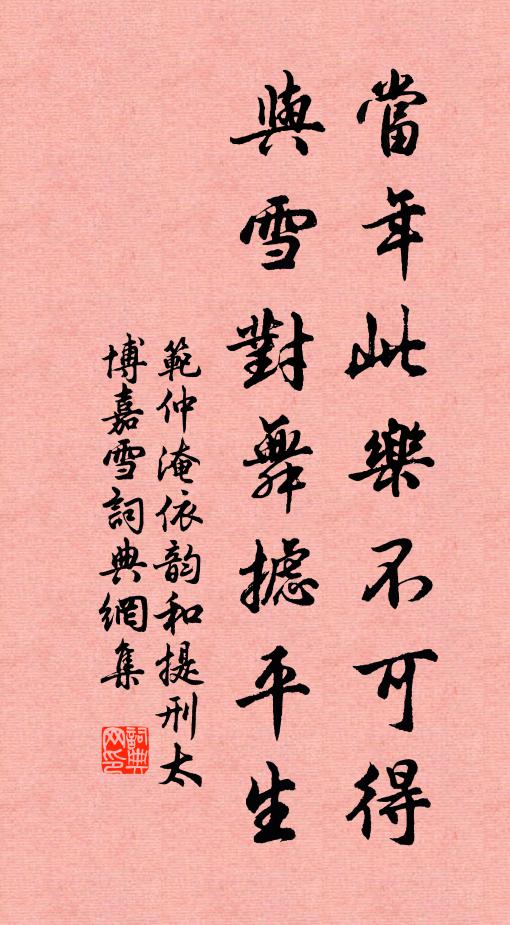 當年此樂不可得
與雪對舞攄平生
範仲淹依韵和提刑太
博嘉雪詞典網集
詞典網印